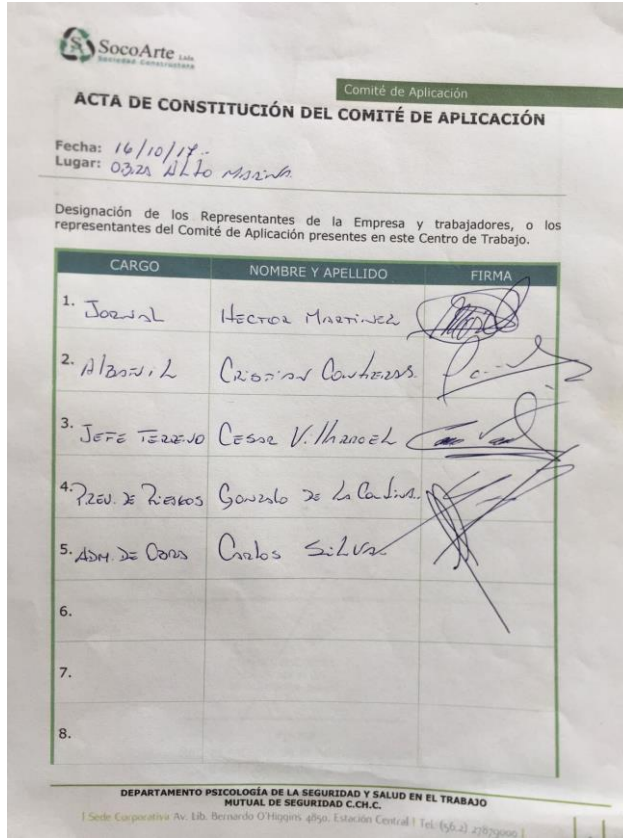 SocoArte Ltda.
Sociedad Constructora
Comité de Aplicación
ACTA DE CONSTITUCIÓN DEL COMITÉ DE APLICACIÓN
Fecha: 16/10/17.-
Lugar: ALTO
Designación de los Representantes de la Empresa y trabajadores, o los
representantes del Comité de Aplicación presentes en este Centro de Trabajo.
CARGO NOMBRE Y APELLIDO FIRMA
1. Jornal HECTOR MARTINEZ
2. Albañil CRISTIAN Contreras.
3. JEFE TERRENO CESAR VillaROEL
4. PREV. DE RIESGOS GONZALO DE LA
5. ADM. DE OBRA Carlos SILVA
6.
7.
8.
DEPARTAMENTO PSICOLOGÍA DE LA SEGURIDAD Y SALUD EN EL TRABAJO
MUTUAL DE SEGURIDAD C.CH.C.
| Sede Corporativa Av. Lib. Bernardo O'Higgins 4850, Estación Central | Tel: (56.2) 27879000 |